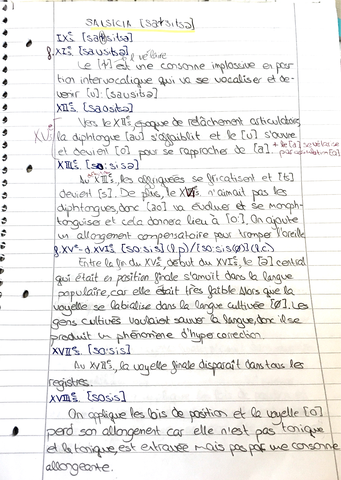 SALSICIA [saɫsitsə]
IXᵉs. [saɫsitsə]
f. XIᵉs. [sausitsə]
Le [ɫ] est une consonne implosive en po-
sition intervocalique qui va se vocaliser et de-
venir [u]: [sausitsə]
XIIᵉs. [saositsə]
Vers le XIIᵉs, époque de relâchement articulatoire,
la diphtongue [au] s'affaiblit et le [u] s'ouvre
et devient [o] pour se rapprocher de [a].
XIIIᵉs. [so:sisə]
Au XIIIᵉs, les affriquées se fricatisent et [ts]
devient [s]. De plus, le n'aimait pas les
diphtongues, donc [ao] va évoluer et se monoph-
tonguise et cela donnera lieu à [o:]. On ajoute
un allongement compensatoire pour tromper l'oreille
f. XVᵉ-d. XVIᵉs. [so:sis] (l.p) / [so:sis(ø)] (l.c)
Entre la fin du XVᵉs, début du XVIᵉs, le [ə] central
qui était en position finale s'amuït dans la langue
populaire, car elle était très faible. Alors que la
voyelle se labialise dans la langue cultivée [ø]. Les
gens cultivés voulaient sauver la langue, donc il se
produit un phénomène d'hypercorrection.
XVIIᵉs. [so:sis]
Au XVIIᵉs, la voyelle finale disparaît dans tous les
registres.
XVIIIᵉs. [sosis]
On applique les lois de position et la voyelle [o]
perd son allongement car elle n'est pas tonique
et la tonique, est entravée mais pas par une consonne
allongeante.